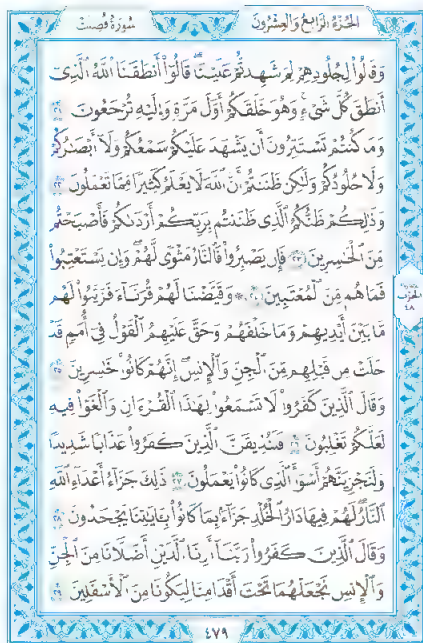 الجزء الرابع والعشرون
سورة فصلت
وَقَالُوا۟ لِجُلُودِهِمْ لِمَ شَهِدتُّمْ عَلَيْنَا ۖ قَالُوٓا۟ أَنطَقَنَا ٱللَّهُ ٱلَّذِىٓ
أَنطَقَ كُلَّ شَىْءٍ وَهُوَ خَلَقَكُمْ أَوَّلَ مَرَّةٍ وَإِلَيْهِ تُرْجَعُونَ ٢١
وَمَا كُنتُمْ تَسْتَتِرُونَ أَن يَشْهَدَ عَلَيْكُمْ سَمْعُكُمْ وَلَآ أَبْصَٰرُكُمْ
وَلَا جُلُودُكُمْ وَلَٰكِن ظَنَنتُمْ أَنَّ ٱللَّهَ لَا يَعْلَمُ كَثِيرًا مِّمَّا تَعْمَلُونَ ٢٢
وَذَٰلِكُمْ ظَنُّكُمُ ٱلَّذِى ظَنَنتُم بِرَبِّكُمْ أَرْدَىٰكُمْ فَأَصْبَحْتُم
مِّنَ ٱلْخَٰسِرِينَ ٢٣ فَإِن يَصْبِرُوا۟ فَٱلنَّارُ مَثْوًى لَّهُمْ ۖ وَإِن يَسْتَعْتِبُوا۟
فَمَا هُم مِّنَ ٱلْمُعْتَبِينَ ٢٤ ۞ وَقَيَّضْنَا لَهُمْ قُرَنَآءَ فَزَيَّنُوا۟ لَهُم
مَّا بَيْنَ أَيْدِيهِمْ وَمَا خَلْفَهُمْ وَحَقَّ عَلَيْهِمُ ٱلْقَوْلُ فِىٓ أُمَمٍ قَدْ
خَلَتْ مِن قَبْلِهِم مِّنَ ٱلْجِنِّ وَٱلْإِنسِ ۖ إِنَّهُمْ كَانُوا۟ خَٰسِرِينَ ٢٥
وَقَالَ ٱلَّذِينَ كَفَرُوا۟ لَا تَسْمَعُوا۟ لِهَٰذَا ٱلْقُرْءَانِ وَٱلْغَوْا۟ فِيهِ
لَعَلَّكُمْ تَغْلِبُونَ ٢٦ فَلَنُذِيقَنَّ ٱلَّذِينَ كَفَرُوا۟ عَذَابًا شَدِيدًا
وَلَنَجْزِيَنَّهُمْ أَسْوَأَ ٱلَّذِى كَانُوا۟ يَعْمَلُونَ ٢٧ ذَٰلِكَ جَزَآءُ أَعْدَآءِ ٱللَّهِ
ٱلنَّارُ ۖ لَهُمْ فِيهَا دَارُ ٱلْخُلْدِ ۖ جَزَآءًۢ بِمَا كَانُوا۟ بِـَٔايَٰتِنَا يَجْحَدُونَ ٢٨
وَقَالَ ٱلَّذِينَ كَفَرُوا۟ رَبَّنَآ أَرِنَا ٱلَّذَيْنِ أَضَلَّانَا مِنَ ٱلْجِنِّ
وَٱلْإِنسِ نَجْعَلْهُمَا تَحْتَ أَقْدَامِنَا لِيَكُونَا مِنَ ٱلْأَسْفَلِينَ ٢٩
الحزب
٤٨
٤٧٩